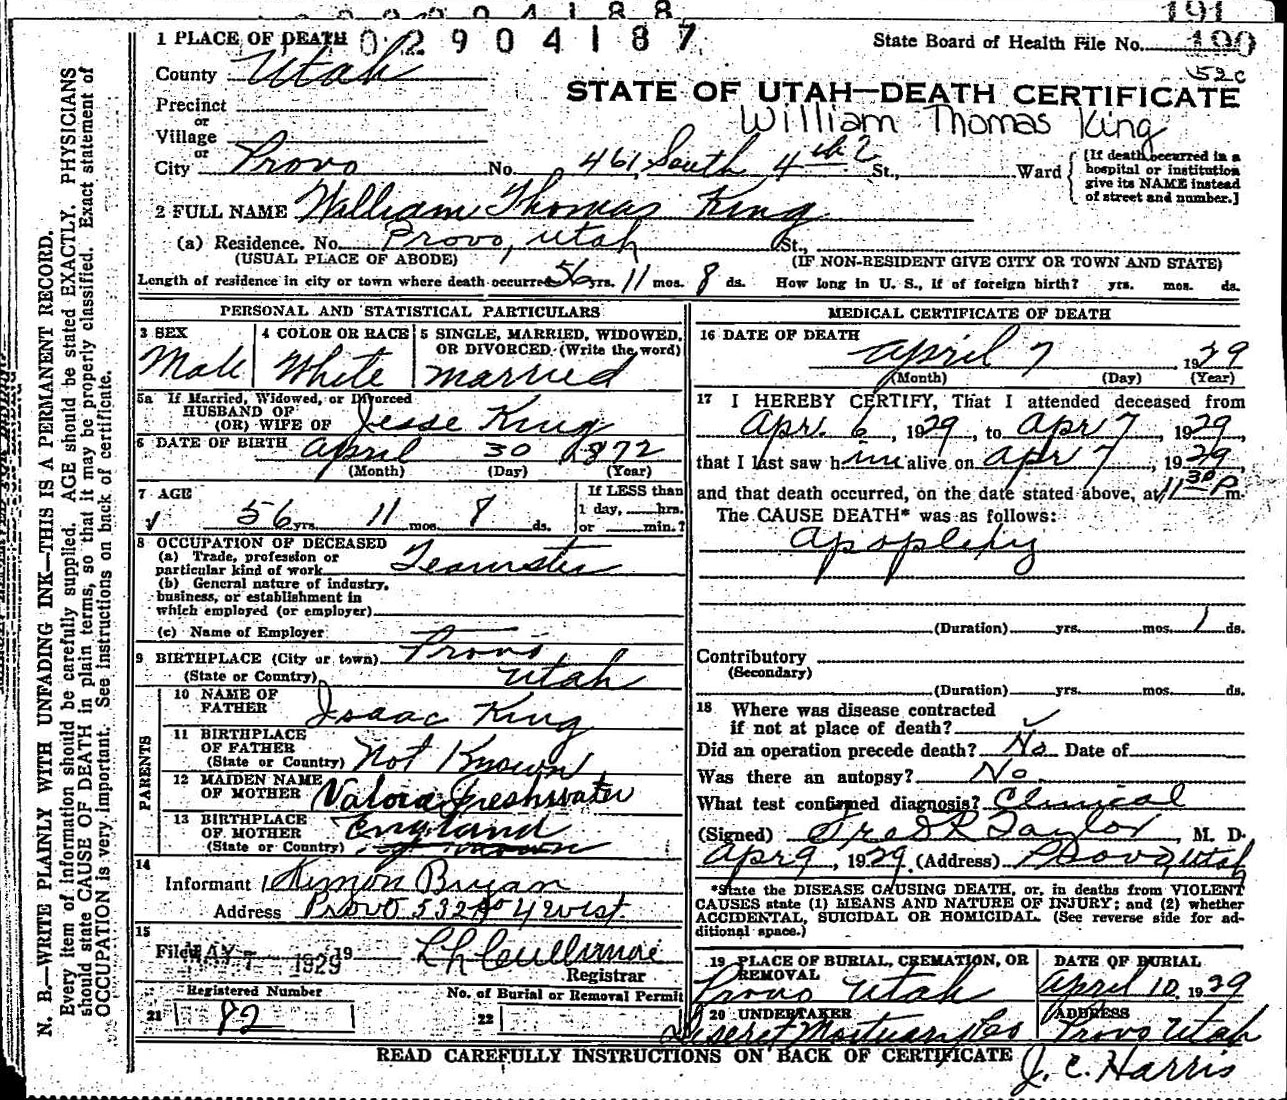 191
1 PLACE OF DEATH 02904187
State Board of Health File No. 190
County Utah
52c
STATE OF UTAH—DEATH CERTIFICATE
Precinct
or
William Thomas King
Village
or
City Provo No. 461 South 4th St., Ward
[If death occurred in a hospital or institution give its NAME instead of street and number.]
2 FULL NAME William Thomas King
(a) Residence. No. Provo, Utah St.,
(USUAL PLACE OF ABODE) (IF NON-RESIDENT GIVE CITY OR TOWN AND STATE)
Length of residence in city or town where death occurred 56 yrs. 11 mos. 8 ds. How long in U. S., if of foreign birth? yrs. mos. ds.
PERSONAL AND STATISTICAL PARTICULARS
3 SEX
Male
4 COLOR OR RACE
White
5 SINGLE, MARRIED, WIDOWED, OR DIVORCED (Write the word)
married
5a If Married, Widowed, or Divorced
HUSBAND OF
(OR) WIFE OF Jesse King
6 DATE OF BIRTH April 30 1872
(Month) (Day) (Year)
7 AGE
56 yrs. 11 mos. 8 ds.
If LESS than
1 day, hrs.
or min.?
8 OCCUPATION OF DECEASED
(a) Trade, profession or
particular kind of work Teamster
(b) General nature of industry,
business, or establishment in
which employed (or employer)
(c) Name of Employer
9 BIRTHPLACE (City or town) Provo
(State or Country) Utah
PARENTS
10 NAME OF
FATHER Isaac King
11 BIRTHPLACE
OF FATHER
(State or Country) Not Known
12 MAIDEN NAME
OF MOTHER Valora Freshwater
13 BIRTHPLACE
OF MOTHER England
(State or Country)
14
Informant Bryan
Address Provo 532 No 4 West
15
Filed MAY 7 1929 19
L h Cullimore
Registrar
Registered Number
21 82
No. of Burial or Removal Permit
22
MEDICAL CERTIFICATE OF DEATH
16 DATE OF DEATH
April 7 1929
(Month) (Day) (Year)
17 I HEREBY CERTIFY, That I attended deceased from
Apr. 6, 1929, to Apr 7, 1929
that I last saw him alive on Apr 7, 1929,
and that death occurred, on the date stated above, at 11 30 P m.
The CAUSE DEATH* was as follows:
apoplexy
(Duration) yrs. mos. 1 ds.
Contributory
(Secondary)
(Duration) yrs. mos. ds.
18 Where was disease contracted
if not at place of death?
Did an operation precede death? No Date of
Was there an autopsy? No.
What test confirmed diagnosis? Clinical
(Signed) Fred R Taylor, M. D.
Apr 9, 1929 (Address) Provo, Utah
*State the DISEASE CAUSING DEATH, or, in deaths from VIOLENT
CAUSES state (1) MEANS AND NATURE OF INJURY; and (2) whether
ACCIDENTAL, SUICIDAL OR HOMICIDAL. (See reverse side for ad-
ditional space.)
19 PLACE OF BURIAL, CREMATION, OR
REMOVAL
Provo Utah
DATE OF BURIAL
April 10, 1929
20 UNDERTAKER
Deseret Mortuary Co
ADDRESS
Provo Utah
READ CAREFULLY INSTRUCTIONS ON BACK OF CERTIFICATE
J. C. Harris
N. B.—WRITE PLAINLY WITH UNFADING INK—THIS IS A PERMANENT RECORD.
Every item of information should be carefully supplied. AGE should be stated EXACTLY. PHYSICIANS
should state CAUSE OF DEATH in plain terms, so that it may be properly classified. Exact statement of
OCCUPATION is very important. See instructions on back of certificate.